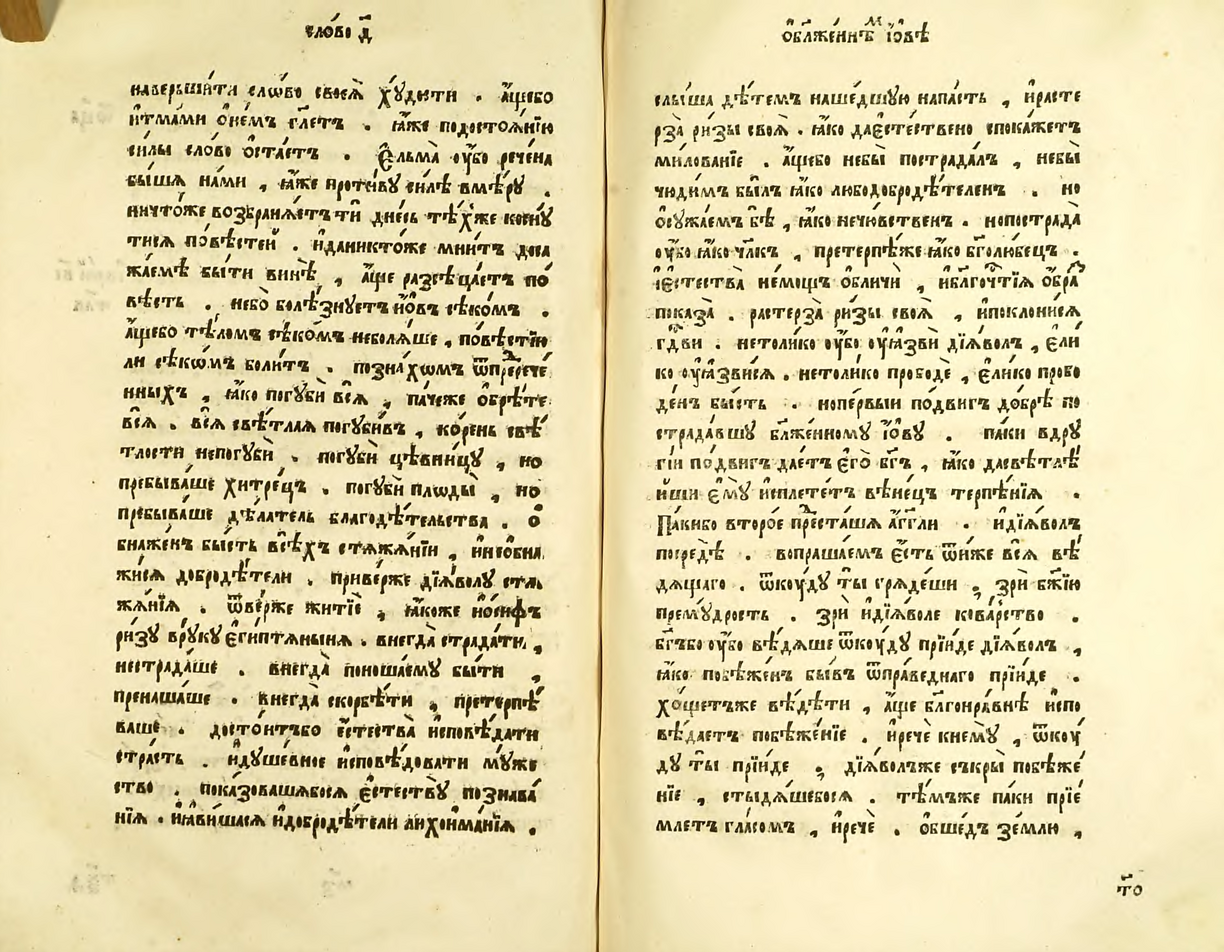 сло́во д҃
наверши́ти сло́во своеѧ̀ хꙋ́дости . а҆́щебо
и҆тмами о҆не́мъ гл҃етъ . ꙗ҆́же подостоѧ́нїю
силы сло́во ѡ҆ста́етъ . є҆льма̀ ᲂу҆́бо рече́на
бы́шѧ на́ми , ꙗ҆́же проти́вꙋ си́лѣ вмѣ́рꙋ .
ничто́же возбранѧ́етъ ти дне́сь тѣ́хже коснꙋ́
тисѧ по́вѣстей . и҆даникто́же мни́тъ доса
жа́емѣ бы́ти винѣ̀ , а҆́ще разсѣца́етъ по́
вѣсть . не́бо болѣ́знꙋетъ і҆ѡ́въ сѣко́мъ .
а҆́щебо тѣ́ломъ сѣко́мъ неболѧ́ше , по́вѣстїю
ли сѣко́мъ боли́тъ . позна́хомъ ѿпререче́
нныхъ , ꙗ҆́ко погꙋбѝ всѧ̀ , па́чеже ѡ҆брѣ́те
всѧ̀ . всѧ̀ свѣ́тлаѧ погꙋби́въ , ко́рень свѣ́
тлости непогꙋбѝ . погꙋбѝ цѣвни́цꙋ , но
пребыва́ше хитре́цъ . погꙋбѝ плоды̀ , но
пребыва́ше дѣ́латель благодѣ́тельства . о҆
бнаже́нъ бы́сть всѣ́хъ стѧжа́нїи , инеѡбна
жи́сѧ добродѣ́тели . приве́рже дїѧ́волꙋ стѧ
жа́нїѧ . ѿве́рже житїѐ , ꙗ҆́коже и҆о́сифъ
ри́зꙋ врꙋ́кꙋ є҆гиптѧ́ныни . внегда̀ страда́ти ,
нестрада́ше . внегда̀ поноша́емꙋ бы́ти ,
пренаша́ше . внегда̀ скорбѣ́ти , претерпѣ
ва́ше . досто́итъбо є҆стества̀ исповѣ́дати
стра́сть . и҆дꙋше́вное исповѣ́довати мꙋ́же
ство . показова́шѧбосѧ є҆стествꙋ̀ познава́
нїѧ . и҆ꙗви́шасѧ и҆добродѣ́тели лихоима́нїѧ .
ѡ҆блаже́ннѣ і҆́ѡвѣ
слы́ша дѣ́темъ наше́дшꙋю напа́сть , и҆расте
рза̀ ри́зы своѧ̀ . ꙗ҆́ко дає҆сте́ствено спока́жетъ
милова́нїе . а҆́щебо небы̀ пострада́лъ , небы̀
чюди́мъ бы́лъ ꙗ҆́ко любодобродѣ́теленъ . но
ѡ҆сꙋжа́емъ бѣ̀ , ꙗ҆́ко нечю́вственъ . нопострада̀
ᲂу҆́бо ꙗ҆́ко чл҃къ , претерпѣ́же ꙗ҆́ко бг҃олю́бецъ .
і҆є҆стества̀ не́мощь ѡ҆бличѝ , и҆благоч҃тїѧ ѡ҆́бра
показа̀ . растерза̀ ри́зы своѧ̀ , и҆поклони́сѧ
гд҃ви . нето́лико ᲂу҆́бо ᲂу҆ѧзвѝ дїѧ́волъ , є҆ли́
ко ᲂу҆ѧзви́сѧ . нето́лико прободѐ , є҆ли́ко пробо
де́нъ бы́сть . нопе́рвыи по́двигъ до́брѣ по
страда́вшꙋ бл҃же́нномꙋ і҆́ѡвꙋ . па́ки вдрꙋ
гі́и по́двигъ дае́тъ є҆го̀ бг҃ъ , ꙗ҆́ко дасвѣтлѣ́
йши є҆мꙋ̀ исплете́тъ вѣне́цъ терпѣ́нїѧ .
Па́кибо второ́е преста́шѧ а҆́гг҃ли . и҆дїѧ́волъ
посредѣ̀ . вопраша́емъ є҆́сть ѿи́же всѧ̀ вѣ́
дѧщаго . ѿкоу́дꙋ ты̀ грѧде́ши ; зрѝ бж҃їю
премꙋ́дрость . зрѝ и҆дїѧ́воле кова́рство .
бг҃ъбо ᲂу҆́бо вѣ́дѧше ѿкоу́дꙋ прїи́де дїѧ́волъ ,
ꙗ҆́ко побѣже́нъ бы́въ ѿпра́веднаго прїи́де .
хо́щетъже вѣ́дѣти , а҆́ще бл҃гонра́внѣ испо
вѣ́даетъ побѣже́нїе . и҆рече́ кнемꙋ̀ , ѿкоу́
дꙋ ты̀ прїи́де ; дїѧ́волъже съкры̀ побѣже́
нїе , стыдѧ́шебосѧ . тѣ́мъже па́ки прїе́
млетъ гла́сомъ , и҆речѐ . ѡ҆бше́дъ зе́млю ,
то